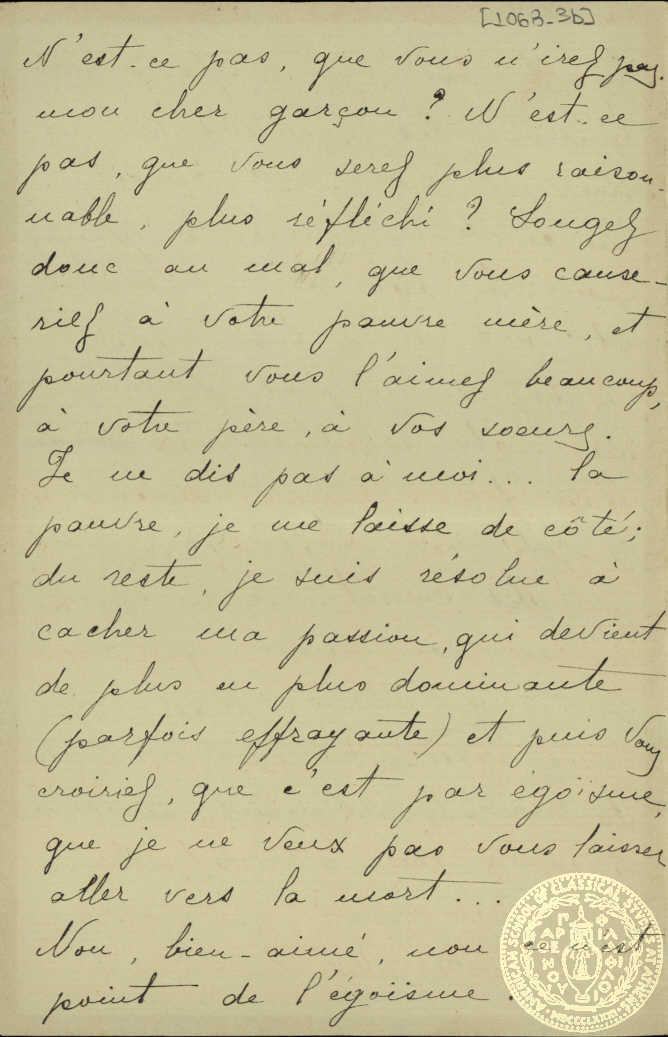 [1063-3b]
N'est-ce pas, que vous n'irez pas.
mon cher garçon ? N'est-ce
pas, que vous serez plus raison-
nable, plus réfléchi ? Songez
donc au mal, que vous cause-
riez à votre pauvre mère, et
pourtant vous l'aimez beaucoup,
à votre père, à vos soeurs.
Je ne dis pas à moi... la
pauvre, je me laisse de côté;
du reste, je suis résolue à
cacher ma passion, qui devient
de plus en plus dominante
(parfois effrayante) et puis vous
croiriez, que c'est par égoïsme,
que je ne veux pas vous laisser
aller vers la mort...
Non, bien-aimé, non ce n'est
point de l'égoïsme.
AMERICAN SCHOOL OF CLASSICAL STUDIES AT ATHENS
MDCCCLXXXI